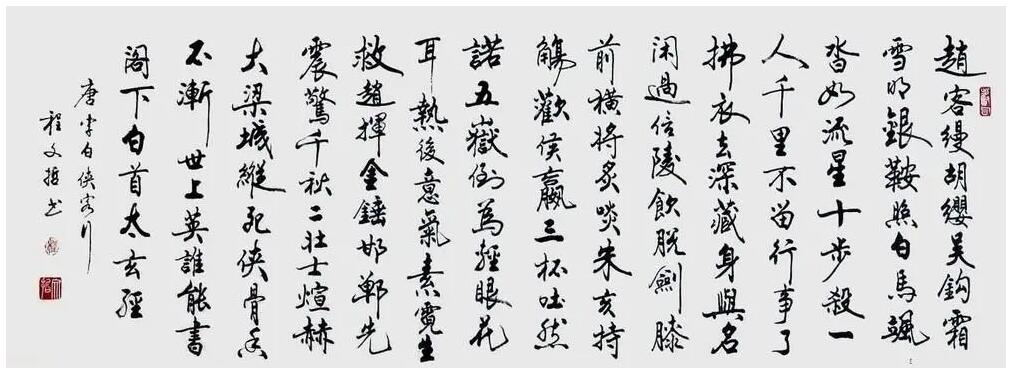 趙客縵胡纓吴鈎霜
雪明銀鞍照白馬颯
沓如流星十步殺一
人千里不留行事了
拂衣去深藏身與名
閑過信陵飲脱劍膝
前橫將炙啖朱亥持
觴歡侯嬴三杯吐然
諾五嶽倒為輕眼花
耳熱後意氣素霓生
救趙揮金錘邯鄲先
震驚千秋二壯士煊赫
大梁城縱死俠骨香
不漸世上英誰能書
閣下白首太玄經
唐李白俠客行
程文
书